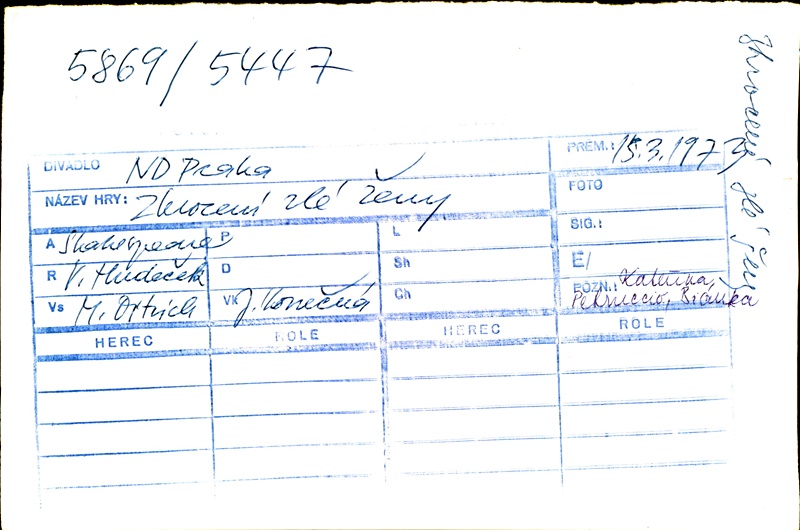 5869/5447
DIVADLO ND Praha
PREM.: 15.3.1972
NÁZEV HRY: Zkrocení zlé ženy
FOTO
SIG.:
A Shakespeare P L
R V. Hudeček D Sh E/
Vs M. Ostrich Vk J. Konečná Ch POZN.: Kateřina,
Petruccio, Bianka
HEREC ROLE HEREC ROLE
Zkrocení zlé ženy